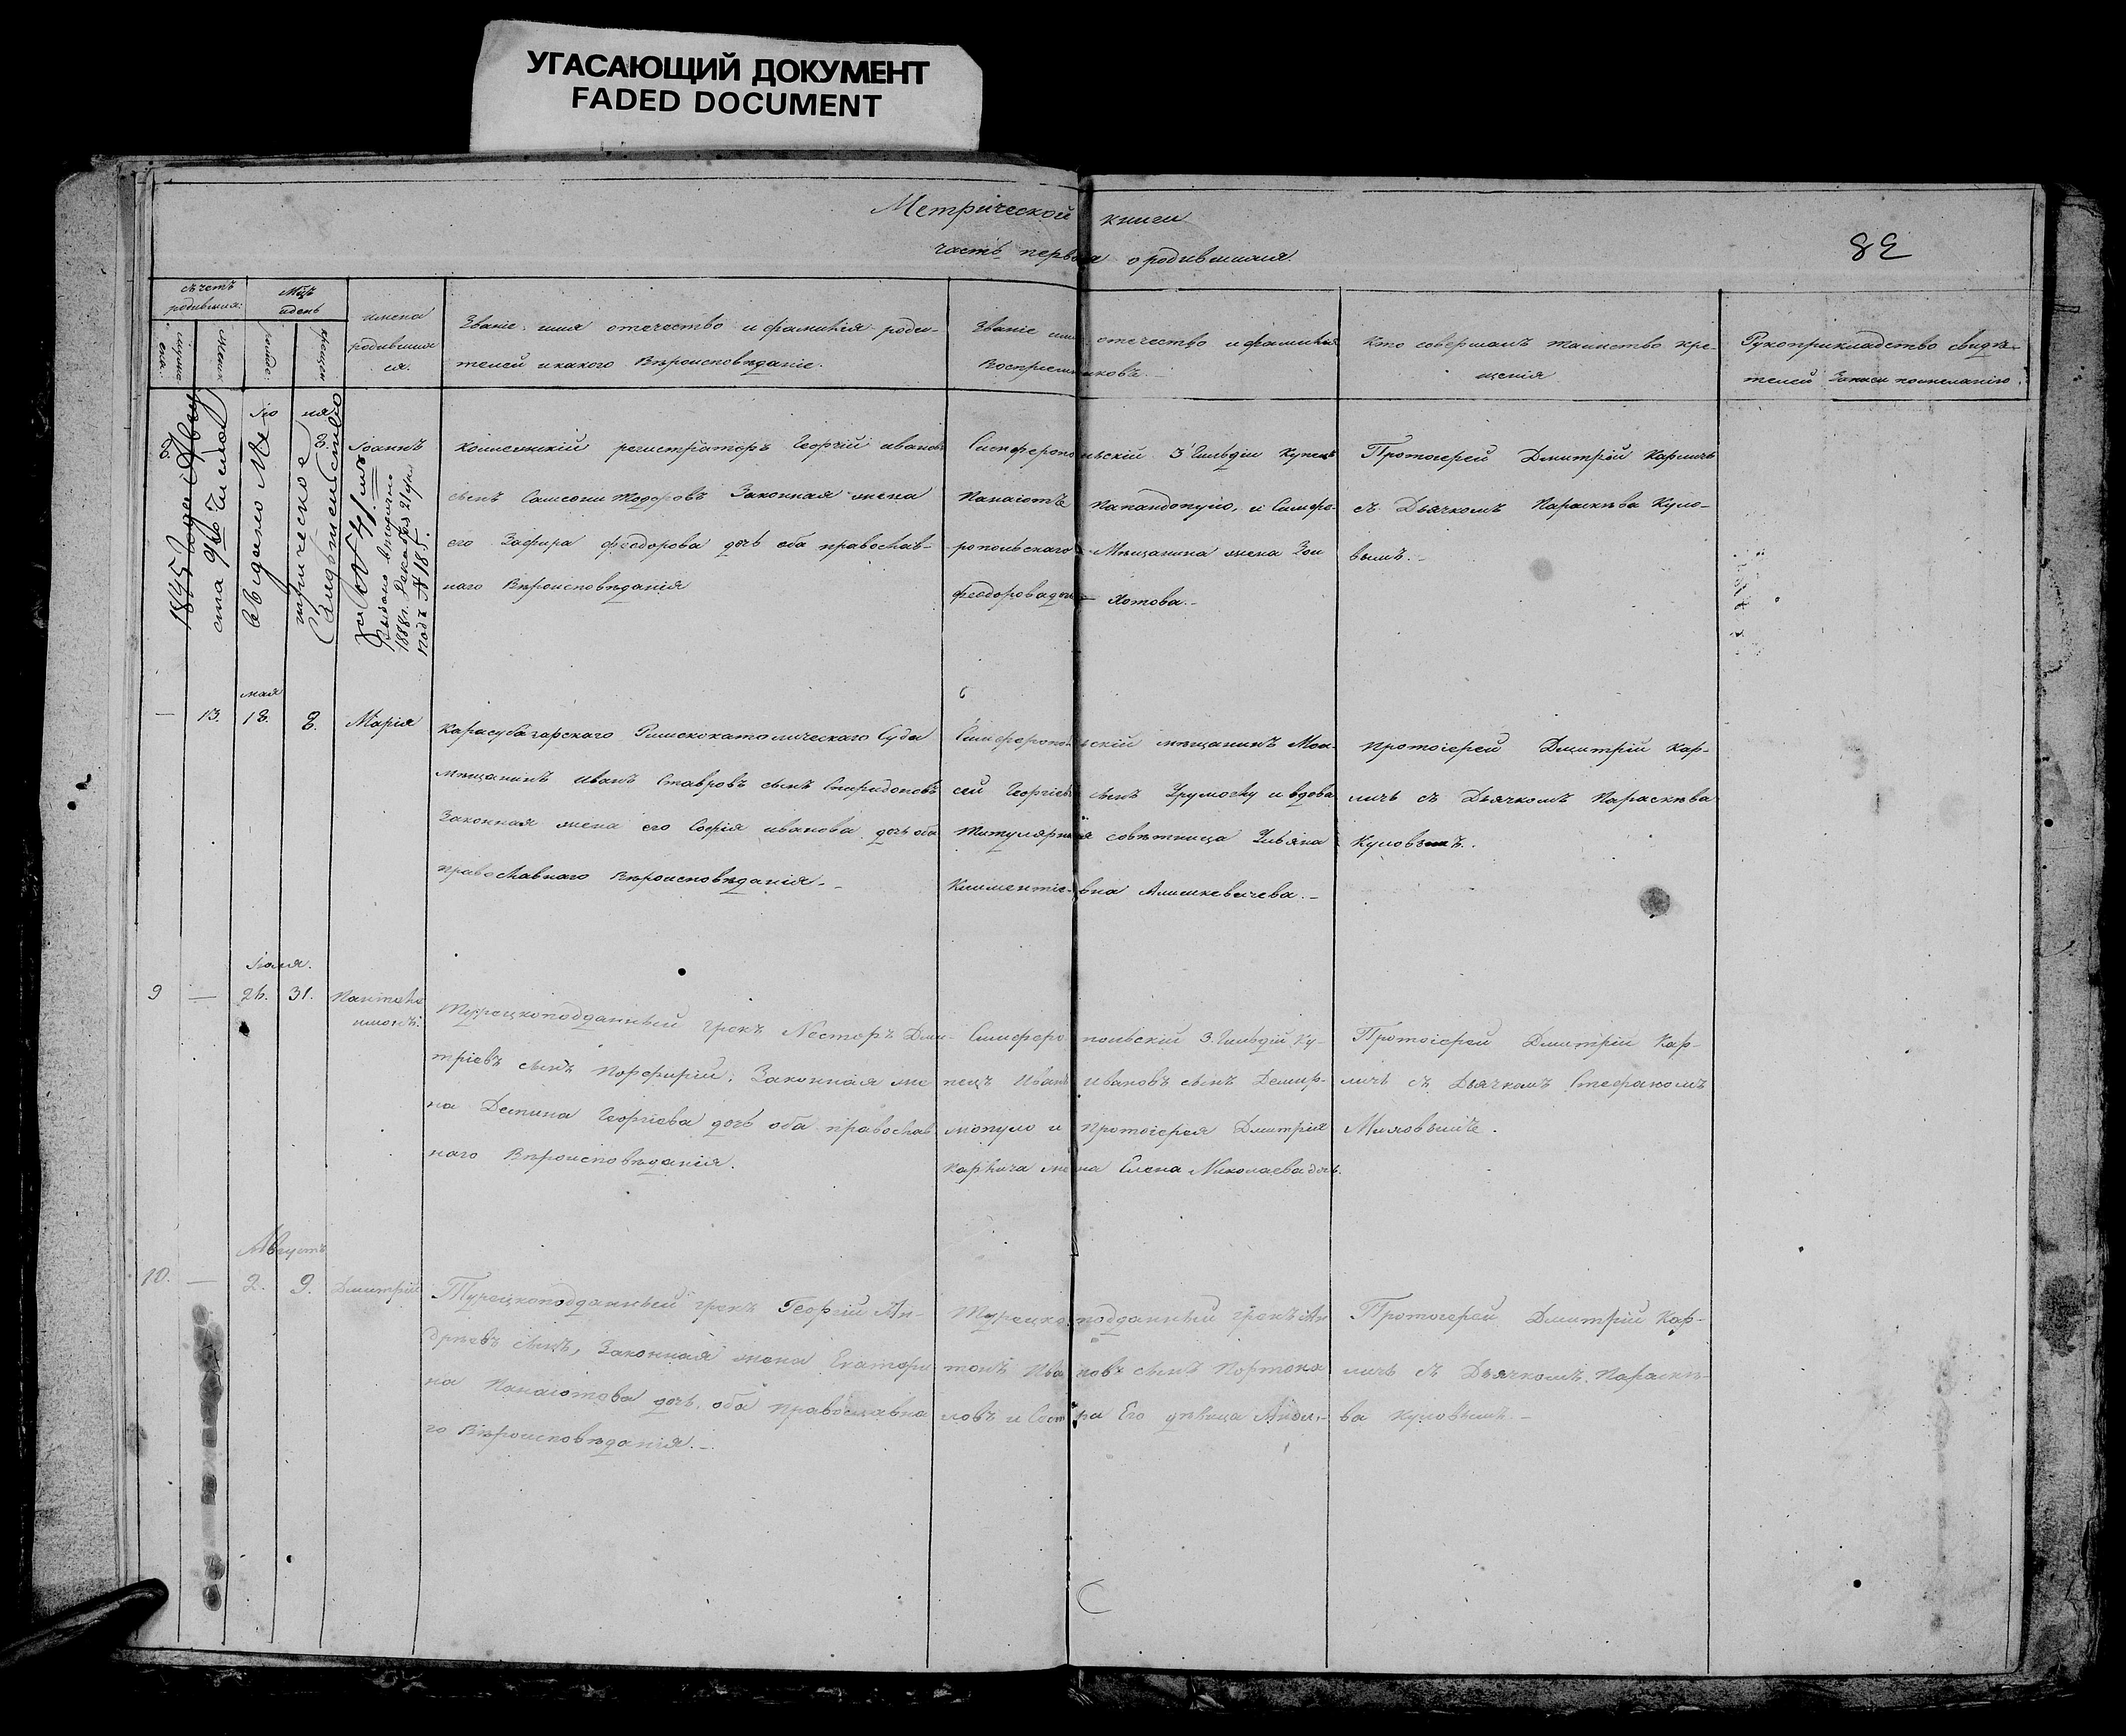 УГАСАЮЩИЙ ДОКУМЕНТ
FADED DOCUMENT
Метрической книги
часть первая о родившихся.
82
счетъ родившихся:
Мцъ и день
имена родившихся.
Званіе, имя отечество и фамилія роди-
телей и какого Вѣроисповѣданіе.
Званіе имя отечество и фамилія
Воспріемниковъ.
Кто совершалъ таинство кре-
щенія
Рукоприкладство свидѣ-
телей записи по желанію.
Іоаннъ
Коллежскій регистраторъ Георгій ивановъ
сынъ Самсони Тодоровъ Законная жена
его Зафира феодорова дочь оба православ-
наго Вѣроисповѣданія
Симферопольскій 3 Гильдіи Купецъ
Панаіотъ Папандопуло, и Симфе-
ропольскаго Мѣщанина жена Зои
феодорова дочь Хотова.-
Протоіерей Дмитрій Карличъ
съ Дьячкомъ Параскѣва Куло-
вымъ.-
1845 года Авгу
ста 9го числа
выдано Ме-
трическое
Свидѣтельство
за № 41мъ
Выдано вторично
1888г. Декабря 21 дня
подъ № 185.
мая
— 13. 18. 8. Марія
Карасубазарскаго Римскокатолическаго Суда
Мѣщанинъ иванъ Ставровъ сынъ Спиридоновъ
Законная жена его Софія иванова дочь оба
православнаго Вѣроисповѣданія.-
Симферопольскій мѣщанинъ Мои-
сей Георгіевъ сынъ Урумоглу и вдова
Титулярная совѣтница Ульяна
Климентіевна Алишкевичева.-
Протоіерей Дмитрій Кар-
личъ съ Дьячкомъ Параскѣва
Куловымъ.
Іюля.
9 — 26. 31. Пантеле
имонъ.
Турецкоподданный грекъ Несторъ Дми-
тріевъ сынъ Порфирій, Законная же
на Деспина Георгіева дочь оба православ
наго Вѣроисповѣданія.
Симферопольскій 3. Гильдіи Ку-
пецъ Иванъ ивановъ сынъ Демир-
жопуло и Протоіерея Дмитрія
Карлича жена Елена Николаева дочь.
Протоіерей Дмитрій Кар-
личъ съ Дьячкомъ Стефаномъ
Августъ
10. — 2. 9. Дмитрій
Турецкоподданный грекъ Георгій Ан-
дрѣевъ сынъ, Законная жена Екатери
на Панаіотова дочь, оба православна
го Вѣроисповѣданія.-
Турецкоподданный грекъ Ан
тонъ Ивановъ сынъ Портока
ловъ и Сестра Его дѣвица
Протоіерей Дмитрій Кар-
личъ съ Дьячкомъ Параскѣ-
ва Куловымъ.-